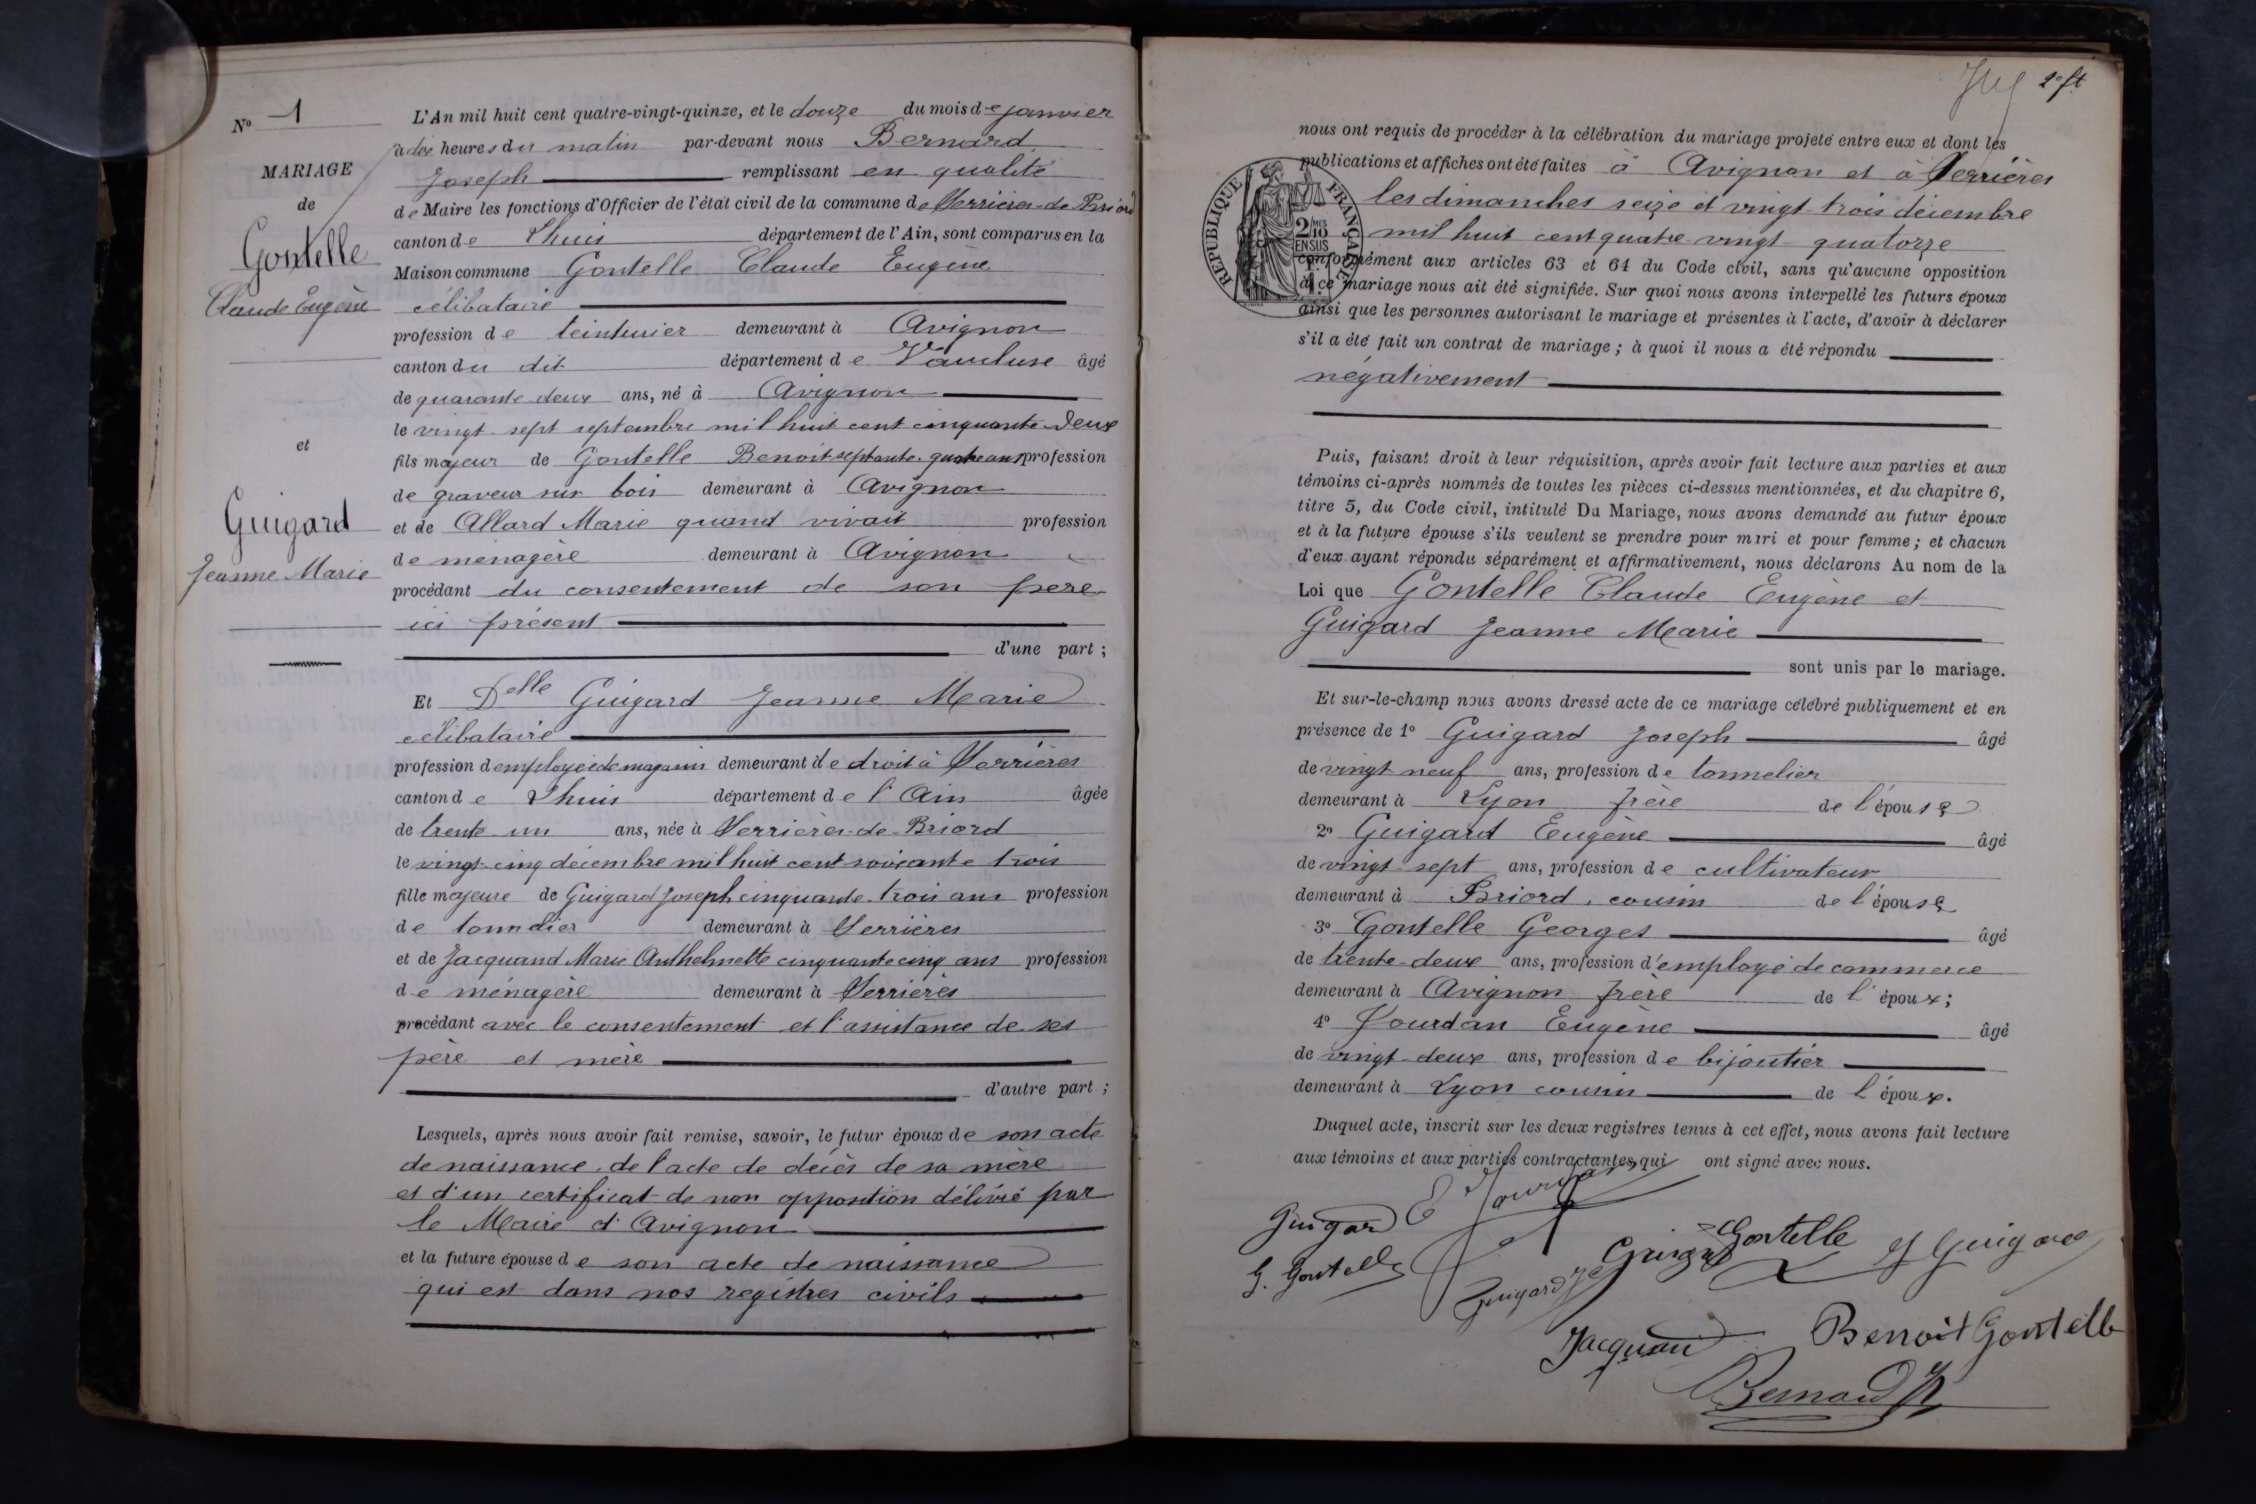 N° 1
MARIAGE
de
Gontelle
Claude Eugène
et
Guigard
Jeanne Marie
L'An mil huit cent quatre-vingt-quinze, et le douze du mois de janvier
à dix heures du matin par-devant nous Bernard
Joseph remplissant en qualité
de Maire les fonctions d'Officier de l'état civil de la commune de Serrières-de-Briord
canton de Lhuis département de l'Ain, sont comparus en la
Maison commune Gontelle Claude Eugène
célibataire
profession de teinturier demeurant à Avignon
canton du dit département de Vaucluse âgé
de quarante deux ans, né à Avignon
le vingt-sept septembre mil huit cent cinquante-deux
fils majeur de Gontelle Benoit septante-quatre ans profession
de graveur sur bois demeurant à Avignon
et de Allard Marie quand vivait profession
de ménagère demeurant à Avignon
procédant du consentement de son père
ici présent
d'une part ;
Et Delle Guigard Jeanne Marie
célibataire
profession d'employée de magasin demeurant de droit à Serrières
canton de Lhuis département de l'Ain âgée
de trente-un ans, née à Serrières-de-Briord
le vingt-cinq décembre mil huit cent soixante trois
fille majeure de Guigard Joseph cinquante-trois ans profession
de tonnelier demeurant à Serrières
et de Jacquand Marie Anthelmette cinquante cinq ans profession
de ménagère demeurant à Serrières
procédant avec le consentement et l'assistance de ses
père et mère
d'autre part ;
Lesquels, après nous avoir fait remise, savoir, le futur époux de son acte
de naissance, de l'acte de décès de sa mère
et d'un certificat de non opposition délivré par
le Maire d'Avignon
et la future épouse de son acte de naissance
qui est dans nos registres civils
nous ont requis de procéder à la célébration du mariage projeté entre eux et dont les
publications et affiches ont été faites à Avignon et à Serrières
les dimanches seize et vingt-trois décembre
mil huit cent quatre-vingt-quatorze
conformément aux articles 63 et 64 du Code civil, sans qu'aucune opposition
à ce mariage nous ait été signifiée. Sur quoi nous avons interpellé les futurs époux
ainsi que les personnes autorisant le mariage et présentes à l'acte, d'avoir à déclarer
s'il a été fait un contrat de mariage ; à quoi il nous a été répondu
négativement
RÉPUBLIQUE FRANÇAISE
2/10
EN SUS
Puis, faisant droit à leur réquisition, après avoir fait lecture aux parties et aux
témoins ci-après nommés de toutes les pièces ci-dessus mentionnées, et du chapitre 6,
titre 5, du Code civil, intitulé Du Mariage, nous avons demandé au futur époux
et à la future épouse s'ils veulent se prendre pour mari et pour femme ; et chacun
d'eux ayant répondu séparément et affirmativement, nous déclarons Au nom de la
Loi que Gontelle Claude Eugène et
Guigard Jeanne Marie
sont unis par le mariage.
Et sur-le-champ nous avons dressé acte de ce mariage célébré publiquement et en
présence de 1° Guigard Joseph âgé
de vingt neuf ans, profession de tonnelier
demeurant à Lyon frère de l'épouse
2° Guigard Eugène âgé
de vingt-sept ans, profession de cultivateur
demeurant à Briord, cousin de l'épouse
3° Gontelle Georges âgé
de trente-deux ans, profession d'employé de commerce
demeurant à Avignon frère de l'époux ;
4° Jourdan Eugène âgé
de vingt-deux ans, profession de bijoutier
demeurant à Lyon cousin de l'époux.
Duquel acte, inscrit sur les deux registres tenus à cet effet, nous avons fait lecture
aux témoins et aux parties contractantes, qui ont signé avec nous.
Guigard E Jourdan
G. Gontelle Guigard Gontelle Guigard
Guigard
Jacquand Benoit Gontelle
Bernard J